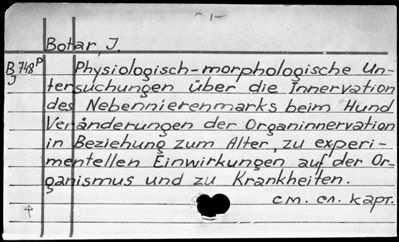 - 1 -
Botar, J.
B 748P Physiologisch-morphologische Un-
J tersuchungen über die Innervation
des Nebennierenmarks beim Hund
Veränderungen der Organinnervation
in Beziehung zum Alter, zu experi-
mentellen Einwirkungen auf der Or-
ganismus und zu Krankheiten.
см. сл. карт.